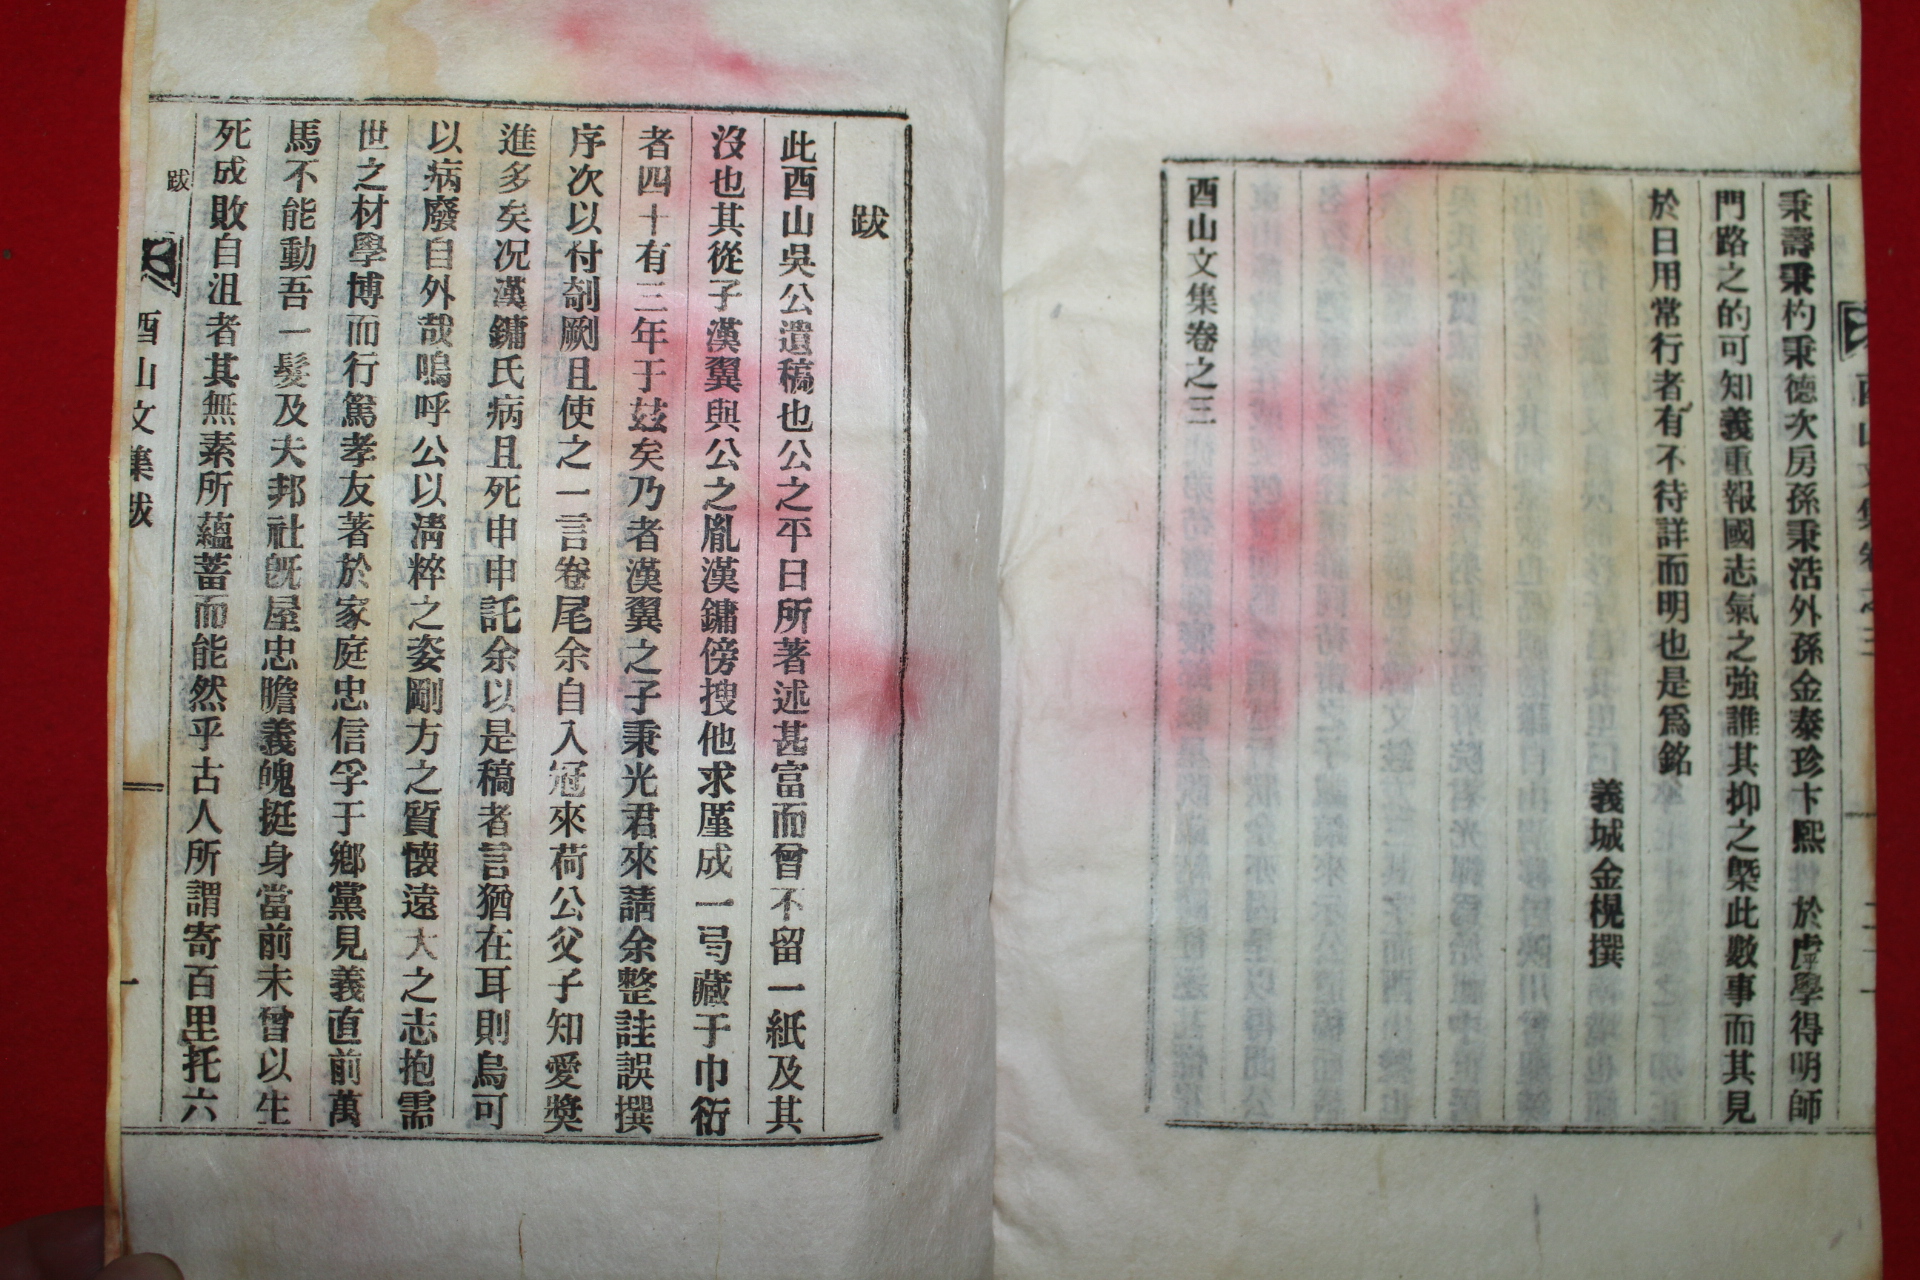 秉壽秉杓秉德次房孫秉浩外孫金泰珍卞熙 於虖學得明師
門路之的可知義重報國志氣之強誰其抑之槩此數事而其見
於日用常行者有不待詳而明也是爲銘
義城金榥撰
酉山文集卷之三
跋
此酉山吳公遺稿也公之平日所著述甚富而曾不留一紙及其
沒也其從子漢翼與公之胤漢鏞傍搜他求厪成一弓藏于巾衍
者四十有三年于玆矣乃者漢翼之子秉光君來請余整註誤撰
序次以付剞劂且使之一言卷尾余自入冠來荷公父子知愛奬
進多矣况漢鏞氏病且死申申託余以是稿者言猶在耳則烏可
以病廢自外哉嗚呼公以淸粹之姿剛方之質懷遠大之志抱需
世之材學博而行篤孝友著於家庭忠信孚于鄉黨見義直前萬
馬不能動吾一髮及夫邦社旣屋忠膽義魄挺身當前未曾以生
死成敗自沮者其無素所蘊蓄而能然乎古人所謂寄百里托六
跋
酉山文集跋
一